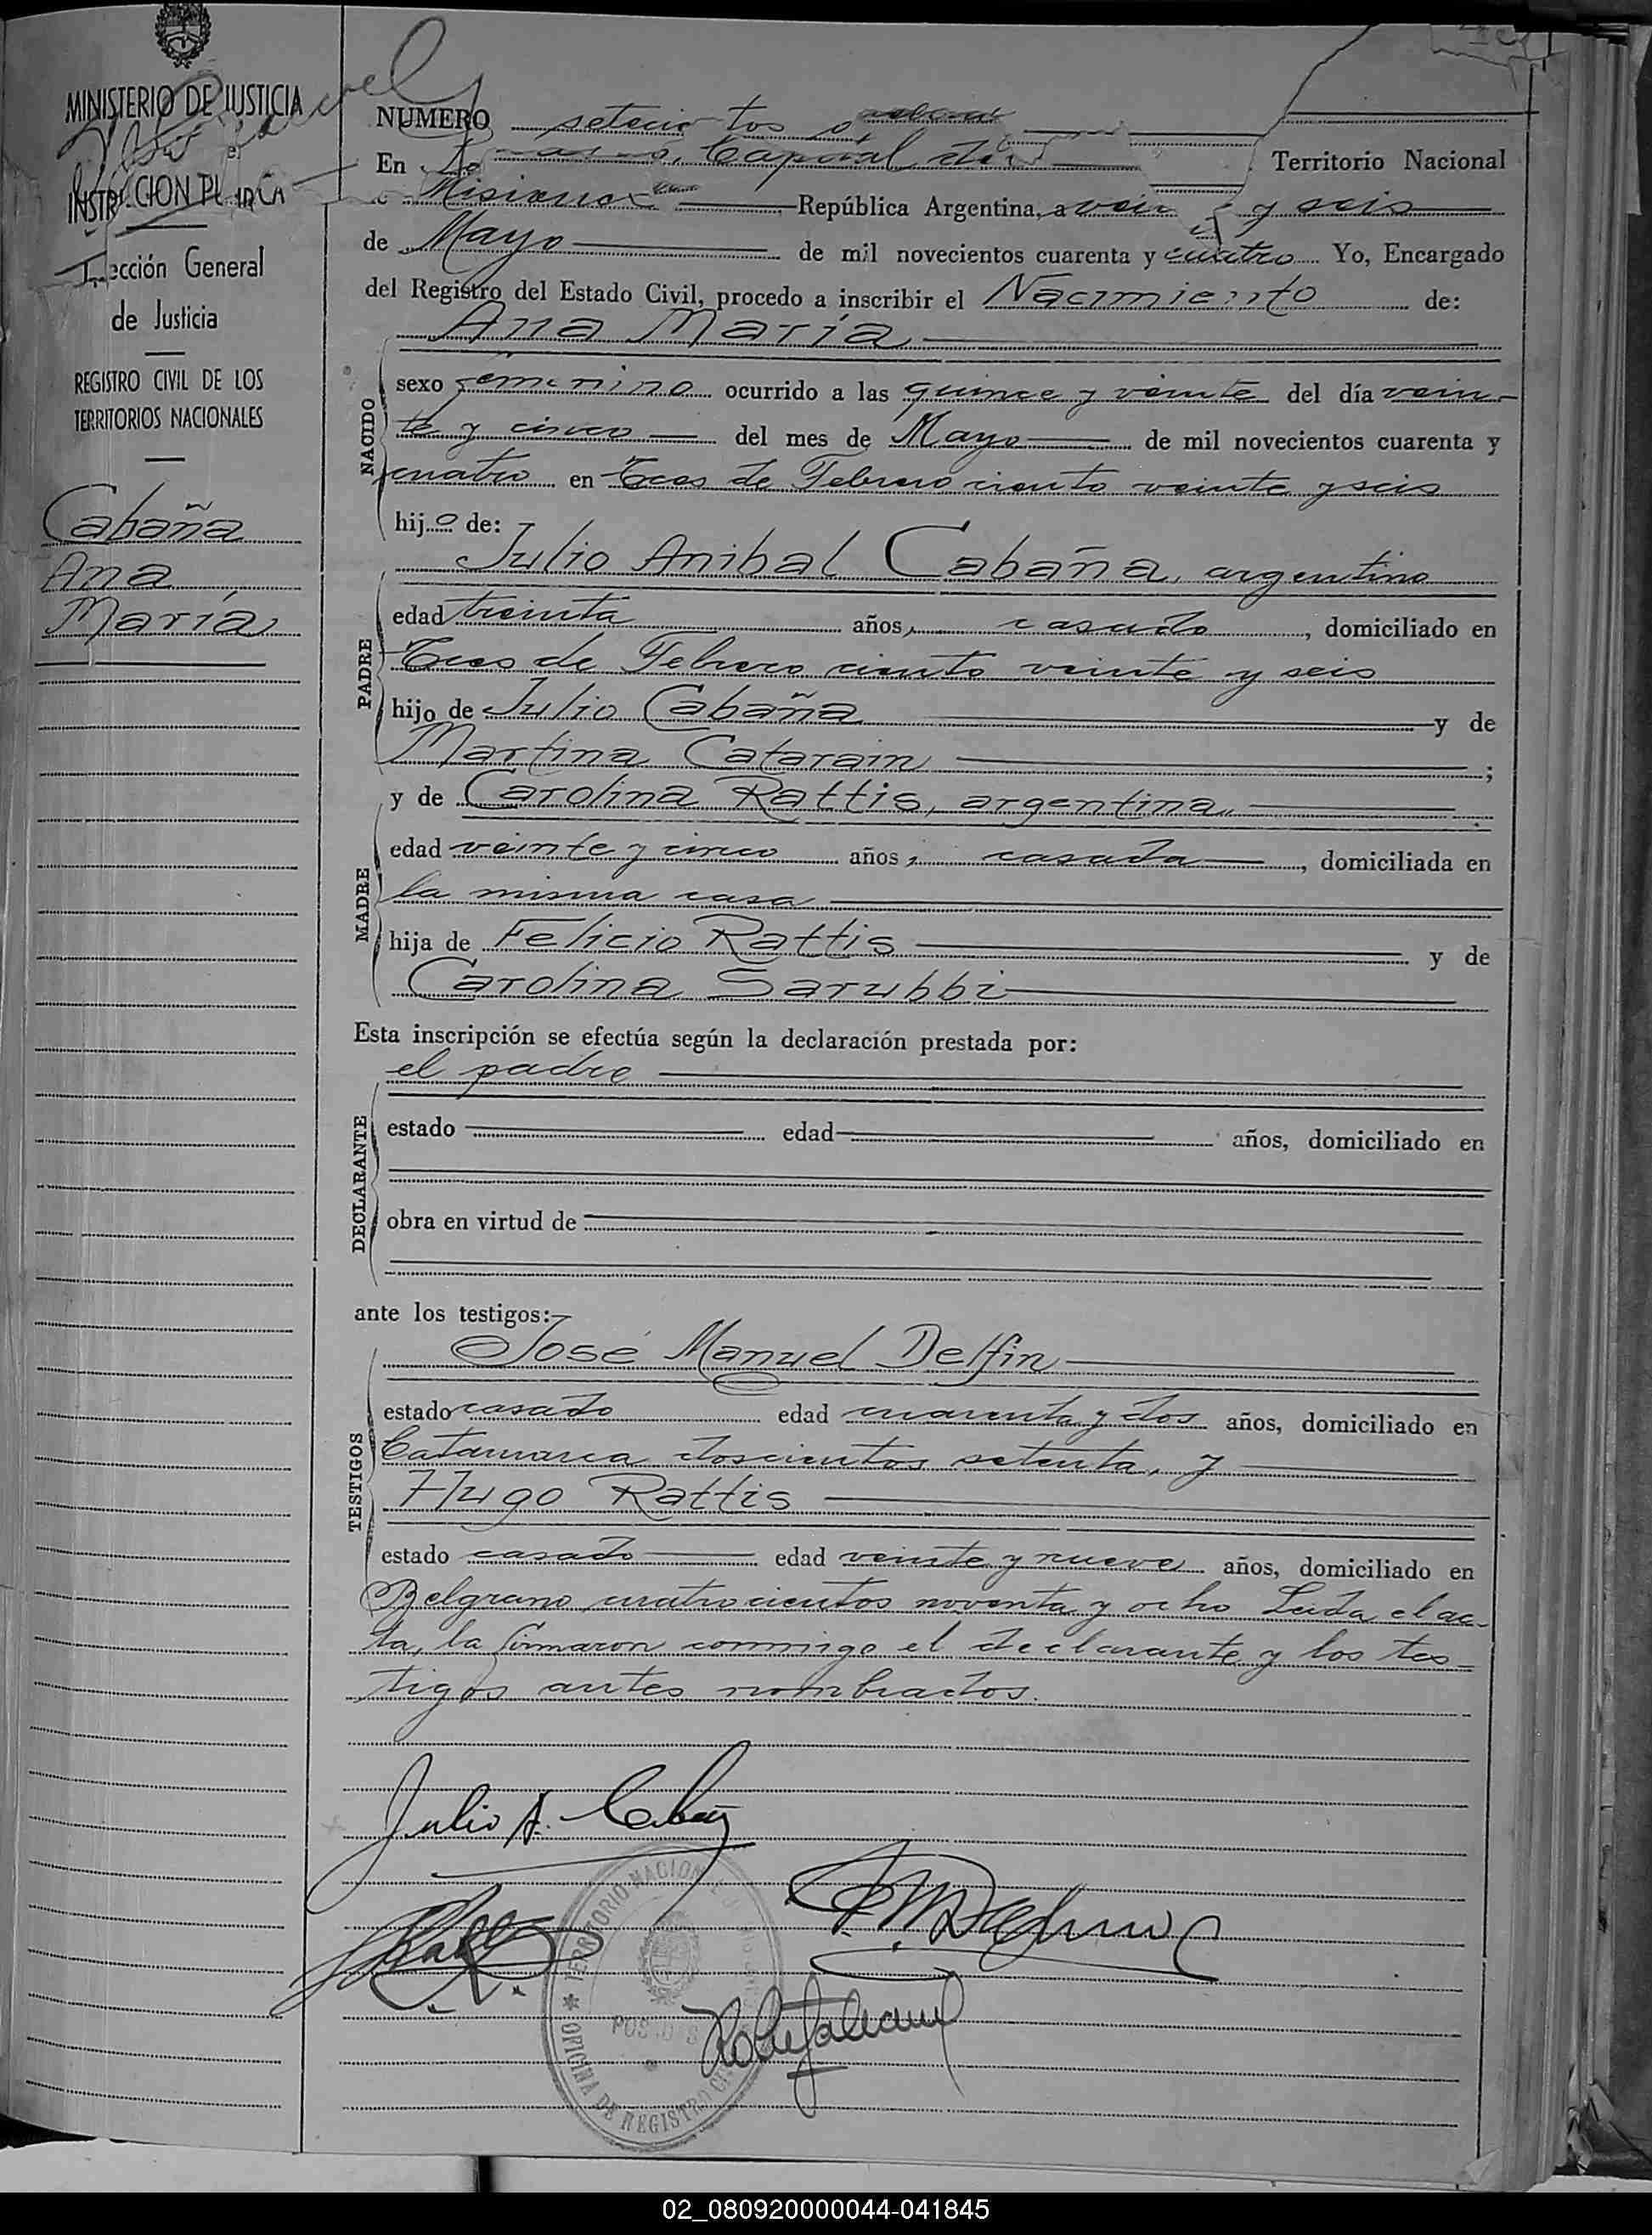 MINISTERIO DE JUSTICIA
e
INSTRUCCION PUBLICA
Inspección General
de Justicia
REGISTRO CIVIL DE LOS
TERRITORIOS NACIONALES
Cabaña
Ana
María
NUMERO setecientos
En Capital de Territorio Nacional
Misiones República Argentina, a veinte y seis
de Mayo de mil novecientos cuarenta y cuatro Yo, Encargado
del Registro del Estado Civil, procedo a inscribir el Nacimiento de:
Ana María
NACIDO
sexo femenino ocurrido a las quince y veinte del día vein-
te y cinco del mes de Mayo de mil novecientos cuarenta y
cuatro en Tres de Febrero ciento veinte y seis
hijo de:
PADRE
Julio Anibal Cabaña, argentino
edad treinta años, casado, domiciliado en
Tres de Febrero ciento veinte y seis
hijo de Julio Cabaña y de
Martina Catarain;
MADRE
y de Carolina Rattis, argentina,
edad veinte y cinco años, casada, domiciliada en
la misma casa
hija de Felicio Rattis y de
Carolina Sarubbi
Esta inscripción se efectúa según la declaración prestada por:
el padre
DECLARANTE
estado edad años, domiciliado en
obra en virtud de
ante los testigos:
TESTIGOS
José Manuel Delfin
estado casado edad cuarenta y dos años, domiciliado en
Catamarca doscientos setenta, y
Hugo Rattis
estado casado edad veinte y nueve años, domiciliado en
Belgrano cuatrocientos noventa y ocho Leida el ac-
ta, la firmaron conmigo el declarante y los tes-
tigos antes nombrados.
Julio A. Cabaña
TERRITORIO NACIONAL
POSADAS
OFICINA DE REGISTRO CIVIL
02_080920000044-041845